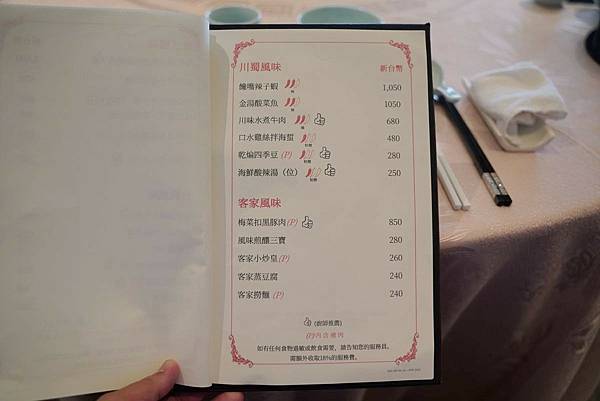 川蜀風味 新台幣
饞嘴辣子蝦 辣 1,050
金湯酸菜魚 辣 1050
川味水煮牛肉 辣 680
口水雞絲拌海蜇 輕辣 480
乾煸四季豆 (P) 輕辣 280
海鮮酸辣湯（位） 輕辣 250
客家風味
梅菜扣黑豚肉 (P) 850
風味煎釀三寶 280
客家小炒皇 (P) 260
客家蒸豆腐 240
客家撈麵 (P) 240
(廚師推薦)
(P)內含豬肉
如有任何食物過敏或飲食需要，請告知您的服務員。
需額外收取10%的服務費。